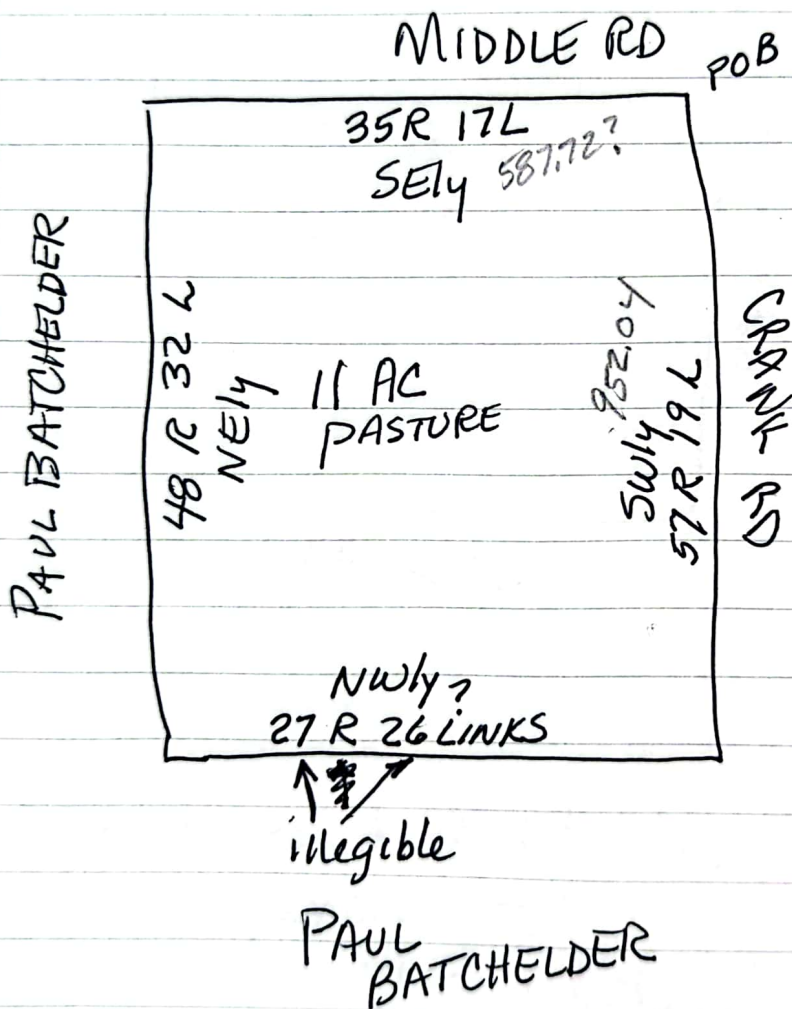 MIDDLE RD
POB
35R 17L
SEly 587.72?
PAUL BATCHELDER
48 R 32 L
NEly
11 AC
PASTURE
952.04
SWly
57 R 19 L
CRANK RD
NWly?
27 R 26 LINKS
illegible
PAUL
BATCHELDER